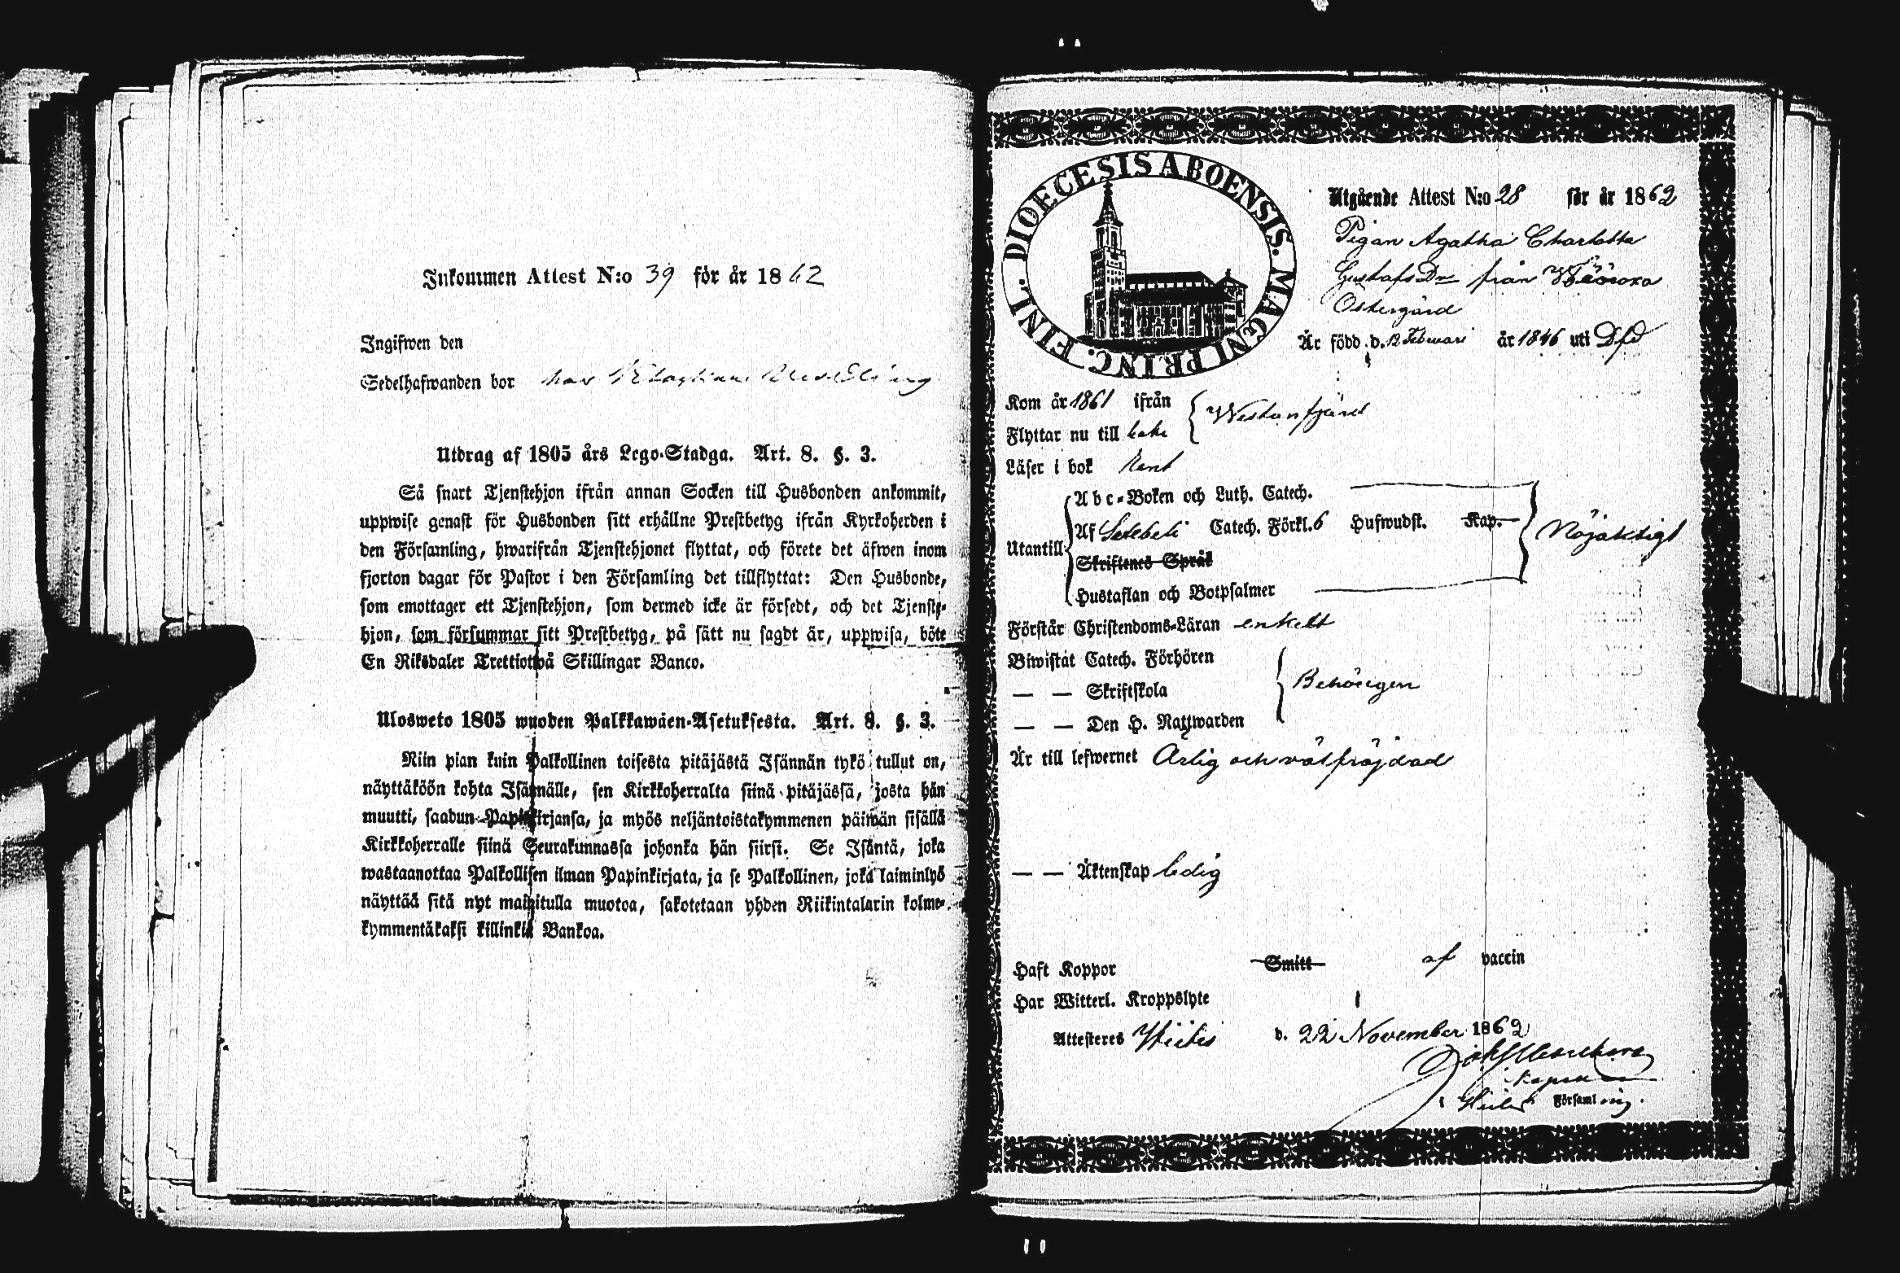 Inkommen Attest N:o 39 för år 1862
Ingifwen den
Sedelhafwanden bor hos
Utdrag af 1805 års Lego-Stadga. Art. 8. §. 3.
Så snart Tjenstehjon ifrån annan Socken till Husbonden ankommit,
uppwise genast för Husbonden sitt erhållne Prestbetyg ifrån Kyrkoherden i
den Församling, hwarifrån Tjenstehjonet flyttat, och förete det äfwen inom
fjorton dagar för Pastor i den Församling det tillflyttat: Den Husbonde,
som emottager ett Tjenstehjon, som dermed icke är försedt, och det Tjenste-
hjon, som försummar sitt Prestbetyg, på sätt nu sagdt är, uppwisa, böte
En Riksdaler Trettiotwå Skillingar Banco.
Ulosweto 1805 wuoden Palkkawäen-Asetuksesta. Art. 8. §. 3.
Niin pian kuin Palkollinen toisesta pitäjästä Isännän tykö tullut on,
näyttäköön kohta Isännälle, sen Kirkkoherralta siinä pitäjässä, josta hän
muutti, saadun Papinkirjansa, ja myös neljäntoistakymmenen päiwän sisällä
Kirkkoherralle siinä Seurakunnassa johonka hän siirsi. Se Isäntä, joka
wastaanottaa Palkollisen ilman Papinkirjata, ja se Palkollinen, joka laiminlyö
näyttää sitä nyt mainitulla muotoa, sakotetaan yhden Riikintalarin kolme-
kymmentäkaksi killinkiä Bankoa.
DIOECESIS ABOENSIS. MAGNI PRINC. FINL.
Utgående Attest N:o 28 för år 1862
Pigan Agatha Charlotta
Gustafs Dr från
Östergård
Är född d. 12 Februari år 1846 uti Dfd
Kom år 1861 ifrån Westanfjärd
Flyttar nu till
Läser i bok Rent
Utantill
Abc-Boken och Luth. Catech.
Af Catech. Förkl. 6 Hufwudst. Kap.
Skriftenes Språk
Hustaflan och Botpsalmer
Nöjaktigt
Förstår Christendoms-Läran enkelt
Biwistat Catech. Förhören
— — Skriftskola Behörigen
— — Den H. Nattwarden
Är till lefwernet Ärlig och välfräjdad
— — Äktenskap ledig
Haft Koppor Smitt af vaccin
Har Witterl. Kroppslyte
Attesteres Hiitis d. 22 November 1862
i Hiitis Församling.